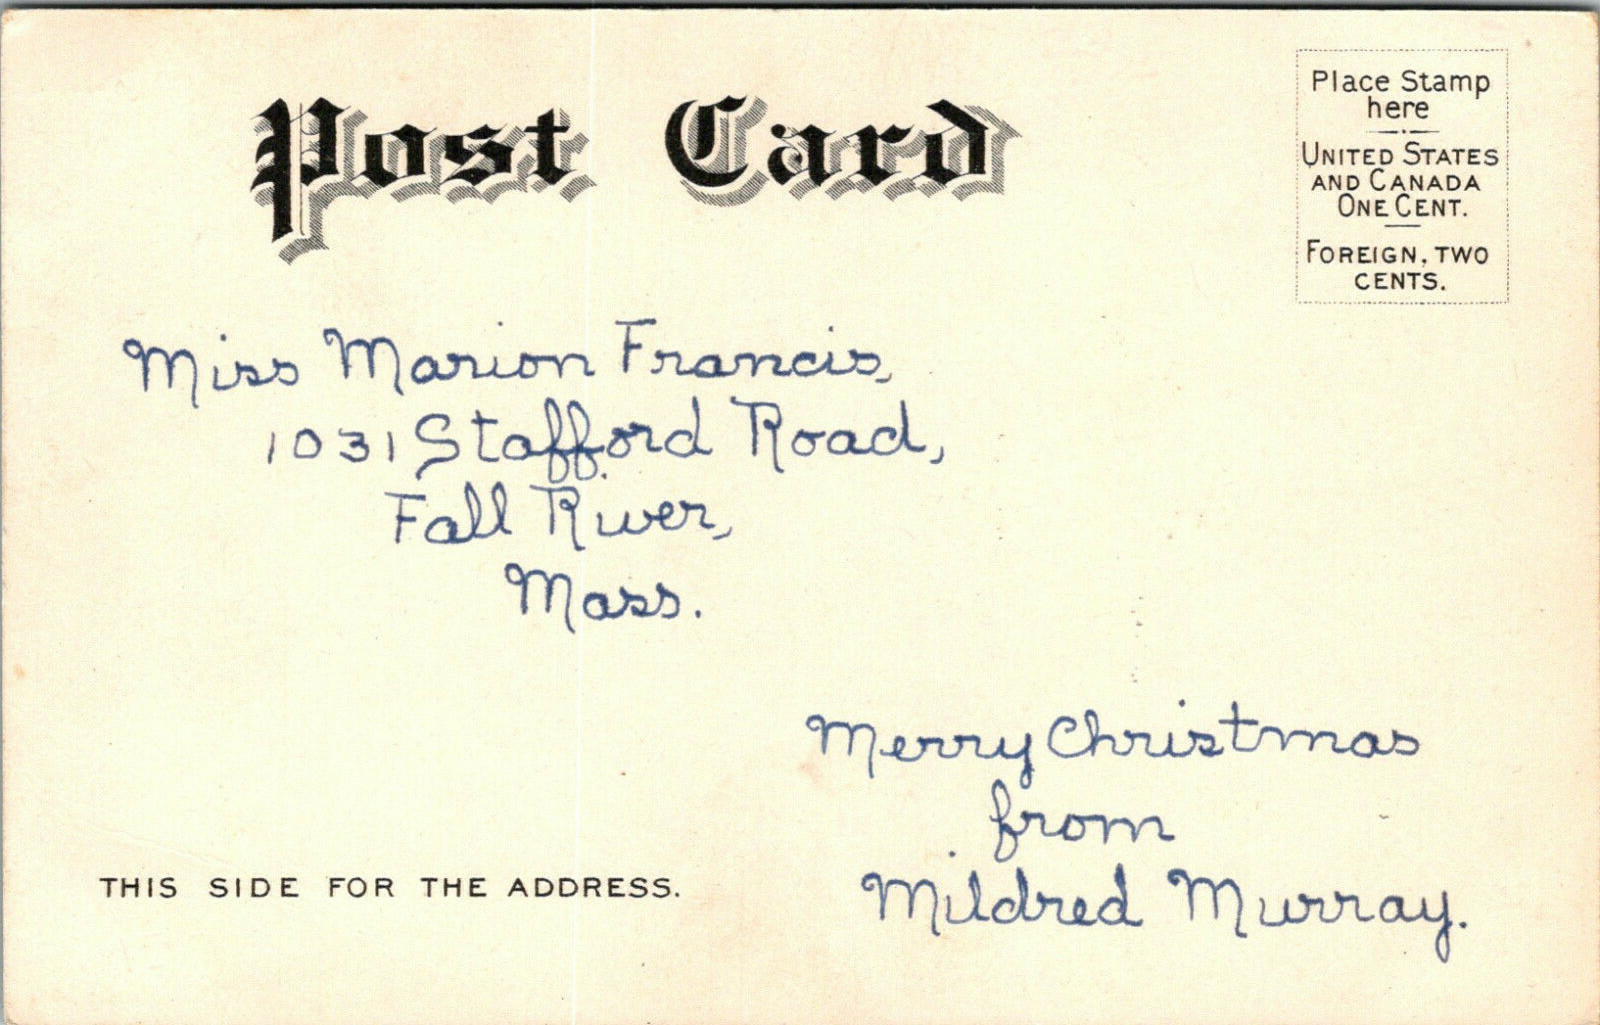 Post Card
Place Stamp
here
UNITED STATES
AND CANADA
ONE CENT.
FOREIGN, TWO
CENTS.
Miss Marion Francis,
1031 Stafford Road,
Fall River,
Mass.
Merry Christmas
from
Mildred Murray.
THIS SIDE FOR THE ADDRESS.